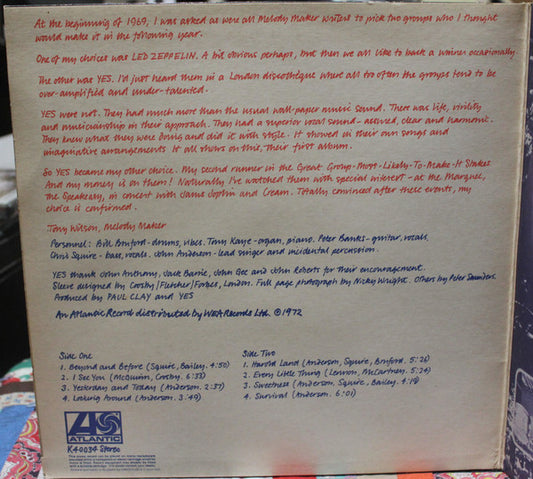 At the beginning of 1969, I was asked as were all Melody Maker writers to pick two groups who I thought
would make it in the following year.
One of my choices was LED ZEPPELIN. A bit obvious perhaps, but then we all like to back a winner occasionally.
The other was YES. I'd just heard them in a London discotheque where all too often the groups tend to be
over-amplified and under-talented.
YES were not. They had much more than the usual wall-paper music sound. There was life, virility
and musicianship in their approach. They had a superior vocal sound - assured, clear and harmonic.
They knew what they were doing and did it with style. It showed in their own songs and
imaginative arrangements. It all shows on this, their first album.
So YES became my other choice. My second runner in the Great Group-Most-Likely-To-Make-It Stakes.
And my money is on them! Naturally I've watched them with special interest - at the Marquee,
the Speakeasy, in concert with Janis Joplin and Cream. Totally convinced after these events, my
choice is confirmed.
Tony Wilson, Melody Maker
Personnel: Bill Bruford - drums, vibes. Tony Kaye - organ, piano. Peter Banks - guitar, vocals.
Chris Squire - bass, vocals. John Anderson - lead singer and incidental percussion.
YES thank John Anthony, Jack Barrie, John Gee and John Roberts for their encouragement.
Sleeve designed by Crosby/Fletcher/Forbes, London. Full page photograph by Nicky Wright. Others by Peter Saunders.
Produced by PAUL CLAY and YES
An Atlantic Record distributed by WEA Records Ltd. ℗ 1972
Side One
1. Beyond and Before (Squire, Bailey. 4:50)
2. I See You (McGuinn, Crosby. 6:33)
3. Yesterday and Today (Anderson. 2:37)
4. Looking Around (Anderson. 3:49)
Side Two
1. Harold Land (Anderson, Squire, Bruford. 5:26)
2. Every Little Thing (Lennon, McCartney. 5:24)
3. Sweetness (Anderson, Squire, Bailey. 4:19)
4. Survival (Anderson. 6:01)
ATLANTIC
K40034 Stereo